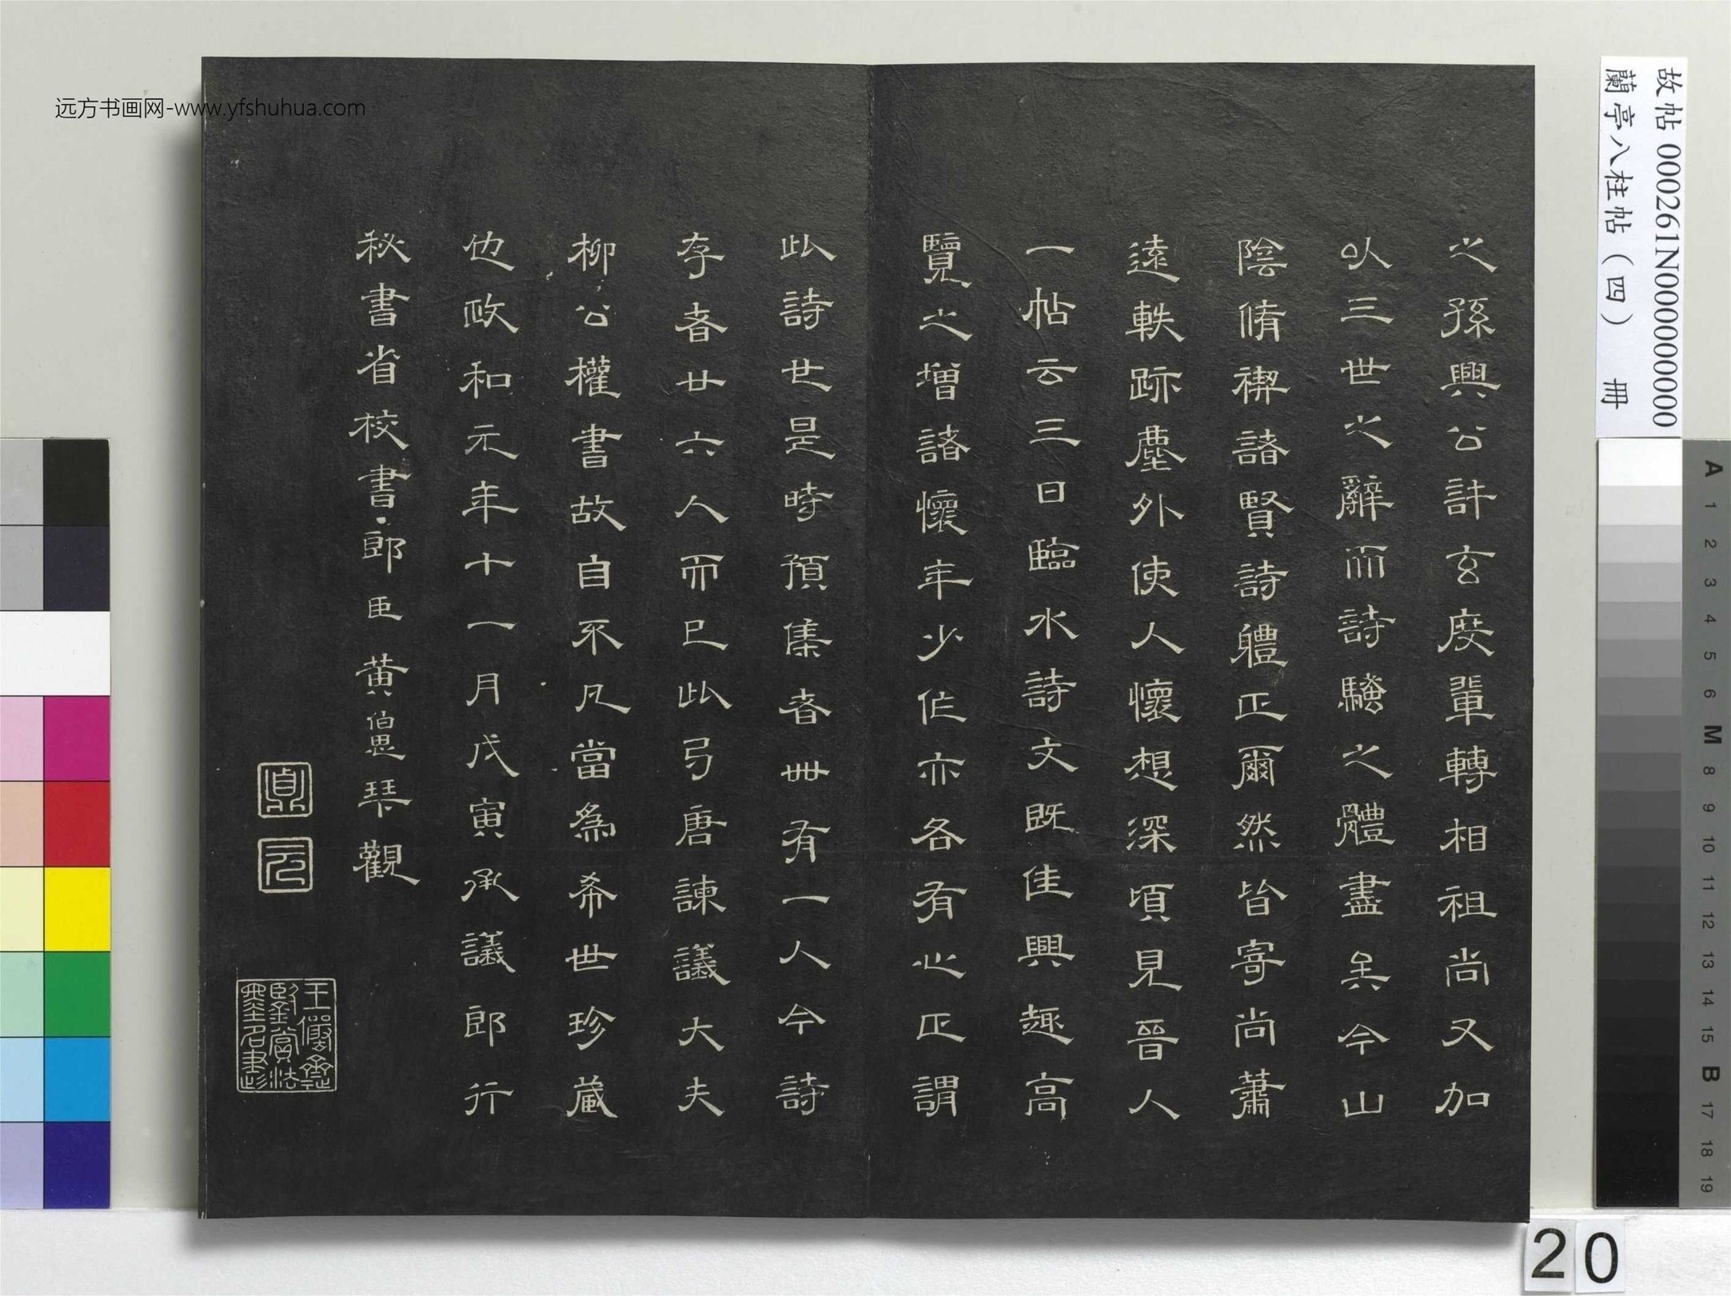 之孫興公許玄度輩轉相祖尚又加
以三世之辭而詩騷之體盡矣今山
陰脩禊諸賢詩軆正爾然皆寄尚蕭
遠軼跡塵外使人懷想深頃見晉人
一帖云三日臨水詩文既佳興趣高
覽之增諸懷年少作亦各有心正謂
此詩也是時預集者卌有一人今詩
存者廿六人而已此乃唐諫議大夫
柳公權書故自不凡當為希世珍藏
也政和元年十一月戊寅承議郎行
秘書省校書郎臣黃伯思琴觀
王儼齋
鑒賞法
書名畫
远方书画网-www.yfshuhua.com
故帖 000261N000000000
蘭亭八柱帖（四） 冊
A 1 2 3 4 5 6 M 8 9 10 11 12 13 14 15 B 17 18 19
20